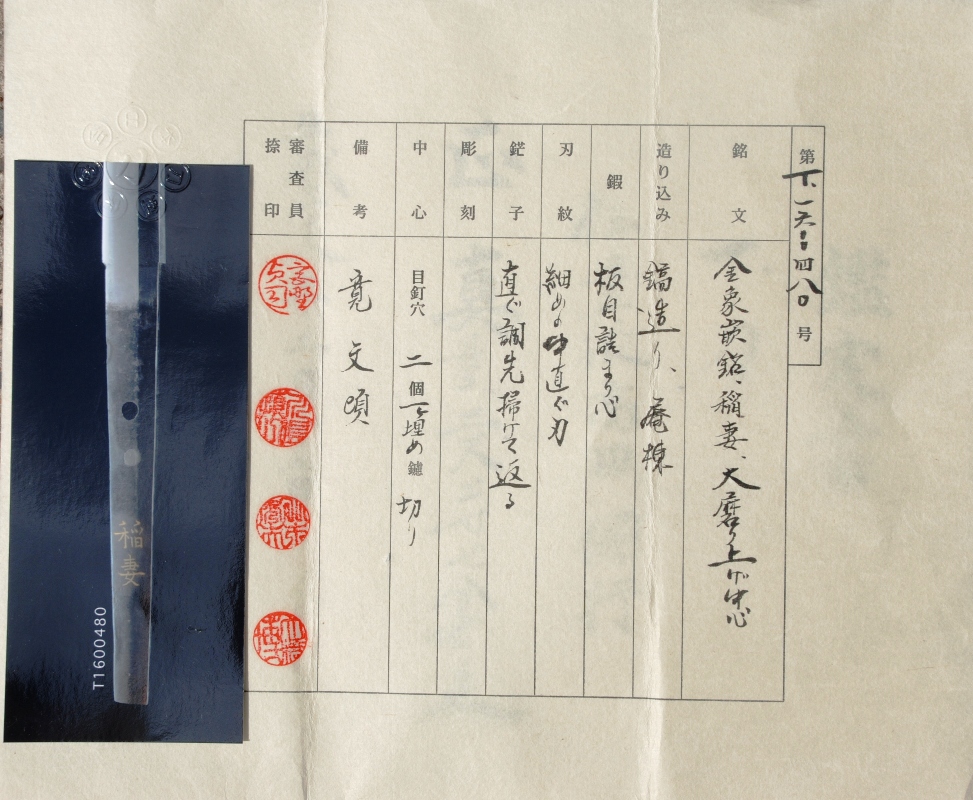 第 T、一六〇〇四八〇 号
銘文 金象嵌銘、稲妻、大磨り上げ中心
造り込み 鎬造り、庵棟
鍜 板目詰まり心
刃紋 細めの中直ぐ刃
鋩子 直ぐ調先掃けて返る
彫刻
中心 目釘穴 二個 一ヶ埋め 鑢 切り
備考 寛文頃
審査員捺印
稲妻
T1600480